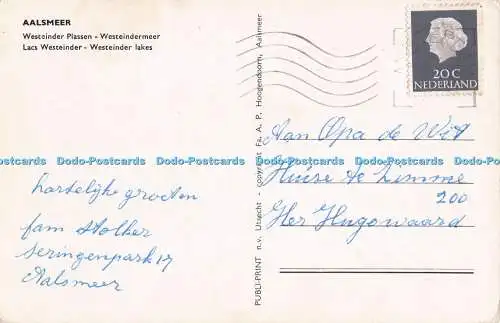 AALSMEER
Westeinder Plassen - Westeindermeer
Lacs Westeinder - Westeinder lakes
hartelijke groeten
fam Stolker
Seringenpark 17
Aalsmeer
PUBLI-PRINT n.v. Utrecht - copyright Fa. A. P. Hoogendoorn, Aalsmeer
20 C
NEDERLAND
Aan Opa de Wit
Huise de
200
Her Hugowaard
Dodo-Postcards Dodo-Postcards Dodo-Postcards Dodo-Postcards Dodo-Postcards
Dodo-Postcards Dodo-Postcards Dodo-Postcards Dodo-Postcards Dodo-Postcards